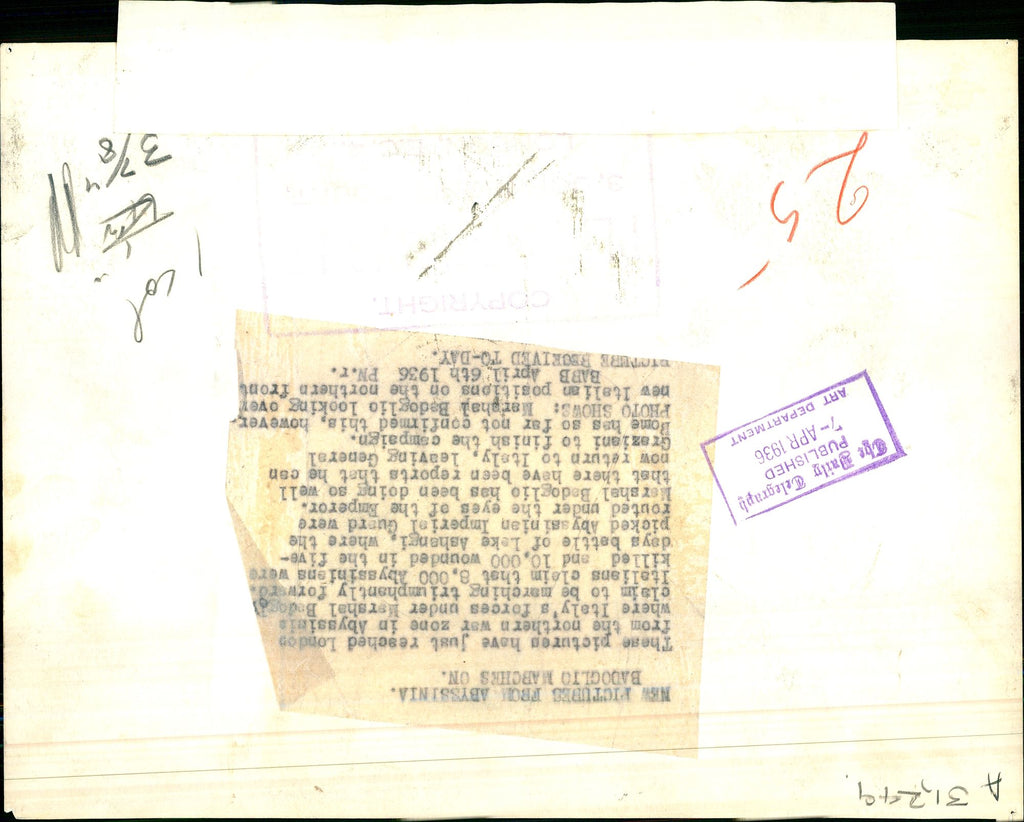 NEW PICTURES FROM ABYSSINIA.
BADOGLIO MARCHES ON.
These pictures have just reached London
from the northern war zone in Abyssinia
where Italy's forces under Marshal Badogli
claim to be marching triumphantly forward.
Italians claim that 8,000 Abyssinians were
killed and 10,000 wounded in the five-
days battle of Lake Ashangi, where the
picked Abyssinian Imperial Guard were
routed under the eyes of the Emperor.
Marshal Badoglio has been doing so well
that there have been reports that he can
now return to Italy, leaving General
Graziani to finish the campaign.
Rome has so far not confirmed this, however
PHOTO SHOWS: Marshal Badoglio looking over
new Italian positions on the northern front
BARB April 6th 1936 PN.r.
PICTURE RECEIVED TO-DAY.
The Daily Telegraph
PUBLISHED
7- APR 1936
ART DEPARTMENT
COPYRIGHT.
A 31,249.
25
37/8"